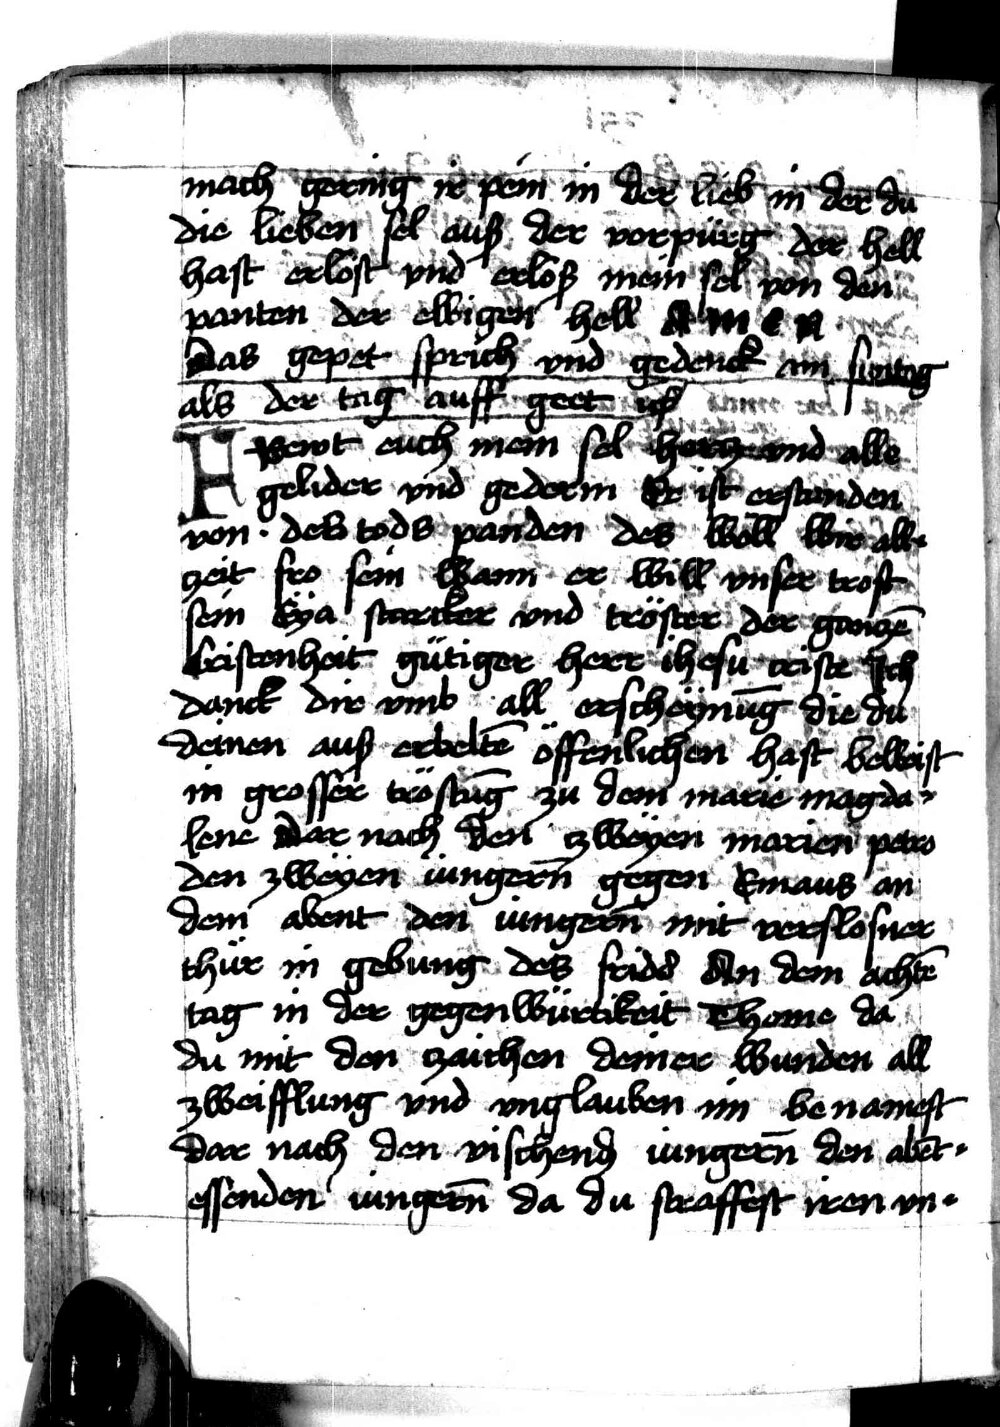 mach gering ir pein in der lieb in der du
die lieben sel auß der vorpürg der hell
hast erlost vnd erloß mein sel von den
panten der ewigen hell Amen
Das gepet sprich vnd gedenck am suntag
als der tag auff geet
Frewt euch mein sel hercz vnd alle
gelider vnd gederm Er ist erstanden
von des tods panden des wöll wir all
zeit fro sein wann er will vnser trost
sein Eÿa starcker vnd tröster der ganczē
cristenheit gütiger herr ihesu criste Ich
danck dir vmb all erscheÿnūg die du
deinen auß erweltē öffenlichen hast beweist
in grosser tröstūg zu dem marie magda-
lene Dar nach den zweÿen marien petro
den zweÿen iungern̄ gegen Emaus an
dem abent den iungern̄ mit verslosner
thür in gebung des frids An dem achtē
tag in der gegenwürtikeit Thome da
du mit den zaichen deiner wunden all
zweifflung vnd vnglauben im benamest
Dar nach den vischend iungern̄ den abēt-
essenden iungern̄ da du straffest iren vn-